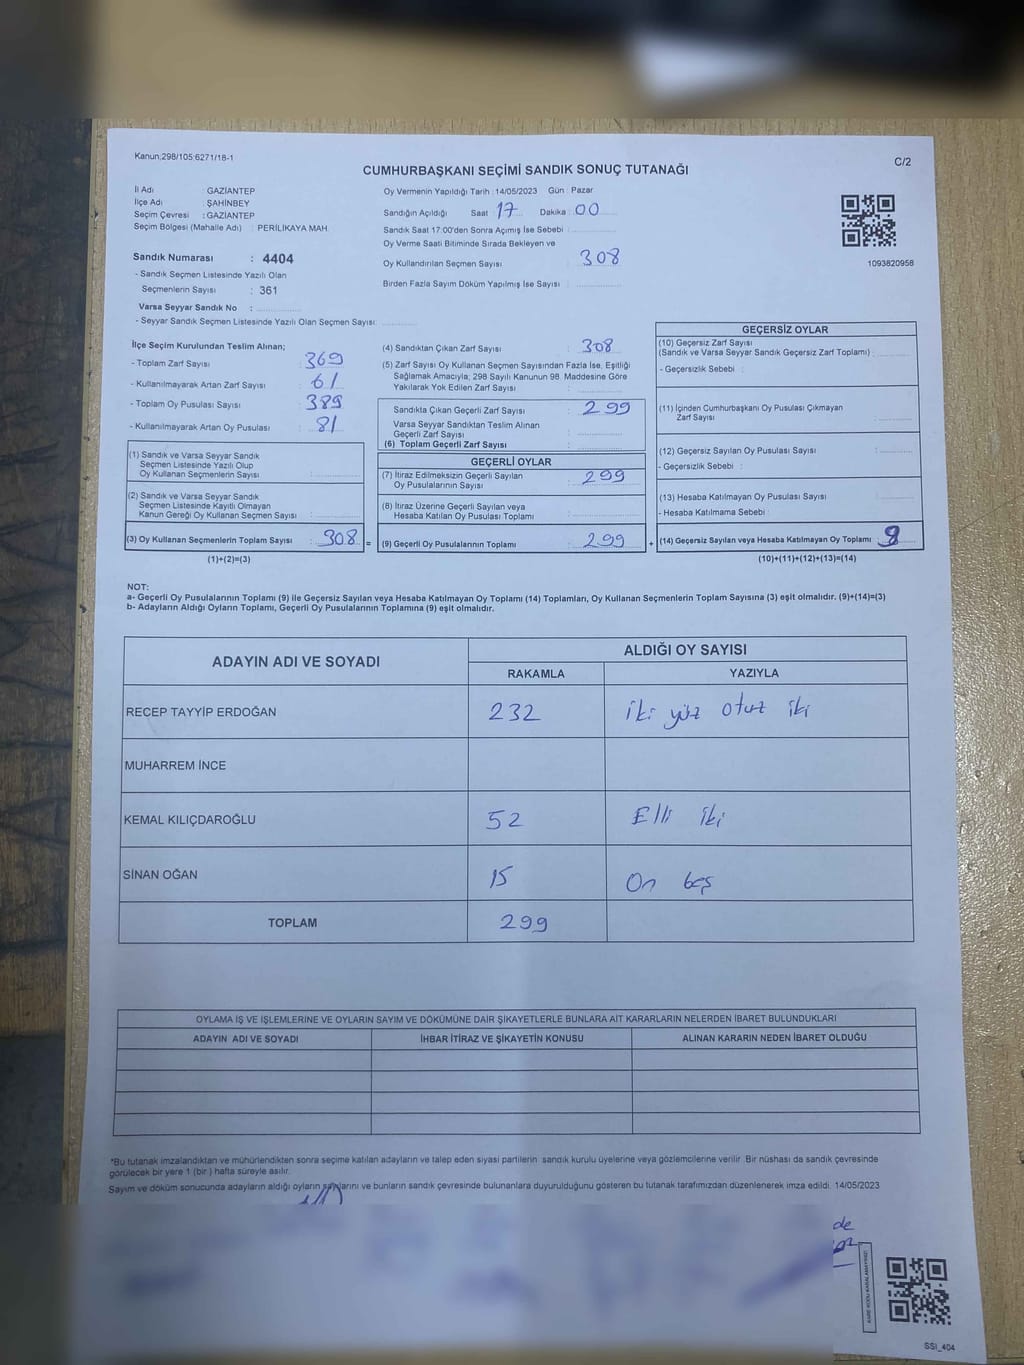 Kanun;298/105;6271/18-1
C/2
CUMHURBAŞKANI SEÇİMİ SANDIK SONUÇ TUTANAĞI
İl Adı : GAZİANTEP
İlçe Adı : ŞAHİNBEY
Seçim Çevresi : GAZİANTEP
Seçim Bölgesi (Mahalle Adı) : PERİLİKAYA MAH.
Oy Vermenin Yapıldığı Tarih : 14/05/2023 Gün : Pazar
Sandığın Açıldığı Saat 17 Dakika 00
Sandık Saat 17:00'den Sonra Açımış İse Sebebi :
Oy Verme Saati Bitiminde Sırada Bekleyen ve
Oy Kullandırılan Seçmen Sayısı : 308
Birden Fazla Sayım Döküm Yapılmış İse Sayısı :
1093820958
Sandık Numarası : 4404
- Sandık Seçmen Listesinde Yazılı Olan
Seçmenlerin Sayısı : 361
Varsa Seyyar Sandık No :
- Seyyar Sandık Seçmen Listesinde Yazılı Olan Seçmen Sayısı:
İlçe Seçim Kurulundan Teslim Alınan;
- Toplam Zarf Sayısı : 369
- Kullanılmayarak Artan Zarf Sayısı : 61
- Toplam Oy Pusulası Sayısı : 389
- Kullanılmayarak Artan Oy Pusulası : 81
(1) Sandık ve Varsa Seyyar Sandık
Seçmen Listesinde Yazılı Olup
Oy Kullanan Seçmenlerin Sayısı :
(2) Sandık ve Varsa Seyyar Sandık
Seçmen Listesinde Kayıtlı Olmayan
Kanun Gereği Oy Kullanan Seçmen Sayısı :
(3) Oy Kullanan Seçmenlerin Toplam Sayısı : 308
(1)+(2)=(3)
(4) Sandıktan Çıkan Zarf Sayısı : 308
(5) Zarf Sayısı Oy Kullanan Seçmen Sayısından Fazla İse, Eşitliği
Sağlamak Amacıyla; 298 Sayılı Kanunun 98. Maddesine Göre
Yakılarak Yok Edilen Zarf Sayısı :
Sandıkta Çıkan Geçerli Zarf Sayısı : 299
Varsa Seyyar Sandıktan Teslim Alınan
Geçerli Zarf Sayısı :
(6) Toplam Geçerli Zarf Sayısı :
GEÇERLİ OYLAR
(7) İtiraz Edilmeksizin Geçerli Sayılan
Oy Pusulalarının Sayısı : 299
(8) İtiraz Üzerine Geçerli Sayılan veya
Hesaba Katılan Oy Pusulası Toplamı :
= (9) Geçerli Oy Pusulalarının Toplamı : 299
GEÇERSİZ OYLAR
(10) Geçersiz Zarf Sayısı
(Sandık ve Varsa Seyyar Sandık Geçersiz Zarf Toplamı) :
- Geçersizlik Sebebi :
(11) İçinden Cumhurbaşkanı Oy Pusulası Çıkmayan
Zarf Sayısı :
(12) Geçersiz Sayılan Oy Pusulası Sayısı :
- Geçersizlik Sebebi :
(13) Hesaba Katılmayan Oy Pusulası Sayısı :
- Hesaba Katılmama Sebebi :
+ (14) Geçersiz Sayılan veya Hesaba Katılmayan Oy Toplamı :
(10)+(11)+(12)+(13)=(14)
NOT:
a- Geçerli Oy Pusulalarının Toplamı (9) ile Geçersiz Sayılan veya Hesaba Katılmayan Oy Toplamı (14) Toplamları, Oy Kullanan Seçmenlerin Toplam Sayısına (3) eşit olmalıdır. (9)+(14)=(3)
b- Adayların Aldığı Oyların Toplamı, Geçerli Oy Pusulalarının Toplamına (9) eşit olmalıdır.
ADAYIN ADI VE SOYADI
ALDIĞI OY SAYISI
RAKAMLA YAZIYLA
RECEP TAYYİP ERDOĞAN 232 iki yüz otuz iki
MUHARREM İNCE
KEMAL KILIÇDAROĞLU 52 Elli iki
SİNAN OĞAN 15 On beş
TOPLAM 299
OYLAMA İŞ VE İŞLEMLERİNE VE OYLARIN SAYIM VE DÖKÜMÜNE DAİR ŞİKAYETLERLE BUNLARA AİT KARARLARIN NELERDEN İBARET BULUNDUKLARI
ADAYIN ADI VE SOYADI İHBAR İTİRAZ VE ŞİKAYETİN KONUSU ALINAN KARARIN NEDEN İBARET OLDUĞU
*Bu tutanak imzalandıktan ve mühürlendikten sonra seçime katılan adayların ve talep eden siyasi partilerin sandık kurulu üyelerine veya gözlemcilerine verilir. Bir nüshası da sandık çevresinde
görülecek bir yere 1 (bir ) hafta süreyle asılır.
Sayım ve döküm sonucunda adayların aldığı oyların sayılarını ve bunların sandık çevresinde bulunanlara duyurulduğunu gösteren bu tutanak tarafımızdan düzenlenerek imza edildi. 14/05/2023
de
SSI_404